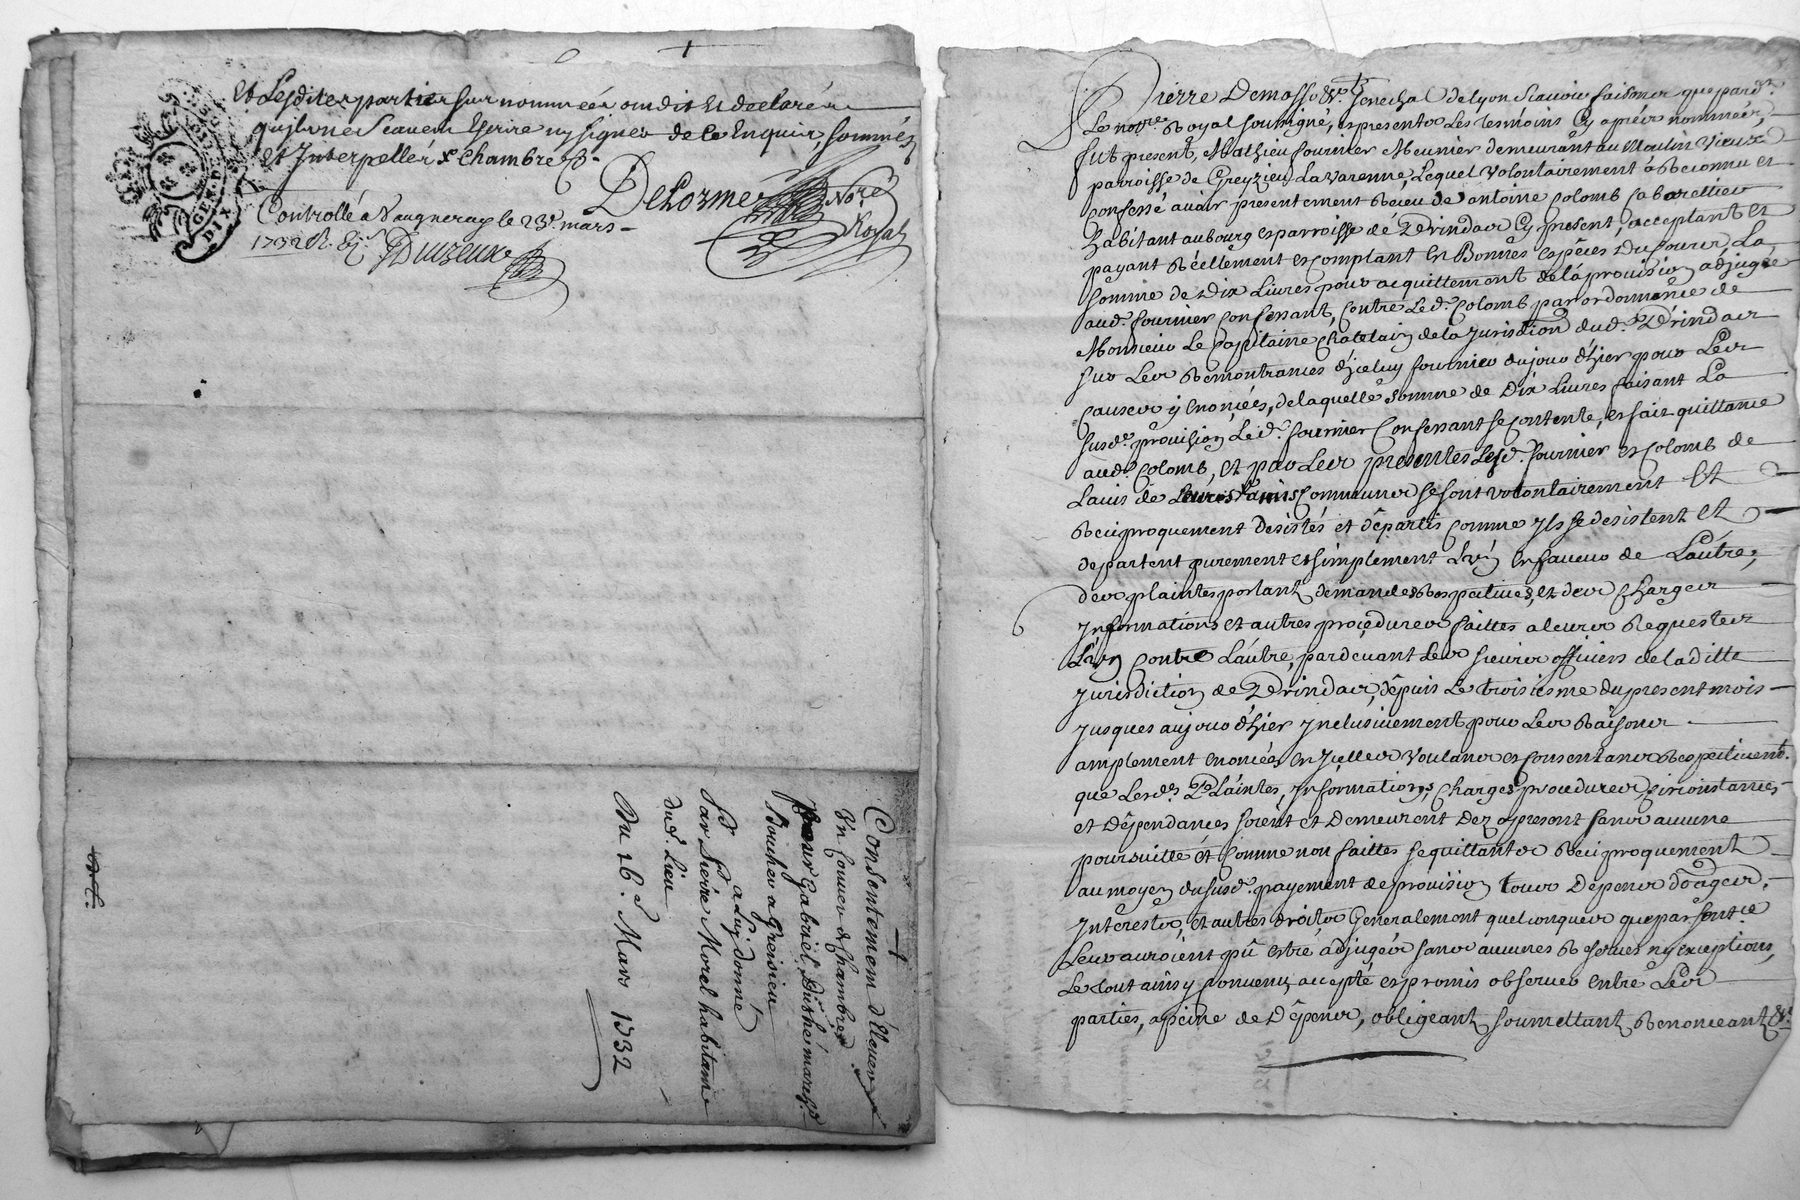 Et Lesdites parties sur nommées ont dit et declaré
qu'ils ne scavent Escrire ny signer de ce Enquis, sommés
et Interpellés
Delorme No.re
Royal
Controllé a Vaugneray le 23e. mars
1732
Duizeux
GEN. DE
DIX
Consentement d'
un
Gabriel
Boucher a Greisieu
a Luy donné
Par Sr Morel habitant
dud. Lieu
Du 16e. Mars 1732
Pierre Demasso &a. Senechal de Lyon Scavoir faisons que pard.t
Le no.re Royal soussigné, et presents Les tesmoins Cy aprés nommés,
fut present, Mathieu fournier Meunier demeurant au Moulin Vieux
parroisse de Greyzieu Lavarenne, Lequel volontairement à Reconnu et
Confessé avoir presentement Receu de antoine Colomb Cabarettier
habitant au bourg et parroisse de Brindas Cy present, acceptant et
payant Réellement et comptant En Bonnes especes Du Cours, La
somme de Dix Livres pour acquittement de la provision adjugée
aud. fournier Confessant, Contre Led. Colomb par ordonnance de
Monsieur Le Capitaine Chatelain de la Jurisdiction dud. Brindas
sur Les Remontrances d'Iceluy fournier du jour d'hier pour Les
Causes y Enoncées, de laquelle somme de Dix Livres faisant La
susd.e provision Led. fournier Confessant se Contente, et fait quittance
aud. Colomb, et par Les presentes Lesd. fournier et Colomb de
L'avis de Leurs amis Communs se sont volontairement Et
Reciproquement Desistés et départis Comme Ils se desistent et
departent purement et simplement L'un En faveur de L'autre,
des plaintes portant demandes Respectives, et des Charges
Informations et autres procedures faittes a leurs Requestes
L'un Contre L'autre, pardevant Les sieurs officiers de laditte
Jurisdiction de Brindas, dépuis Le troisiesme du present mois
Jusques aujour d'hier Inclusivement pour Les Raisons
amplement Enoncées En Icelles Voulants et Consentants Respectivem.t
que Lesd.s Plaintes, Informations, Charges, procedures, Circonstances
et Dépendances soient et Demeurent Dez a present sans aucune
poursuitte et Comme non faittes se quittants Reciproquement
au moyen du susd. payement de provision tous Depens domages,
Interests, et autres droits Generalement quelconques que par sent.ce
Leurs auroient pû Estre adjugés sans aucunes Reserves ny exceptions,
Le tout ainsy Convenu, accepté et promis observer entre Les
parties, a peine de Dépens, obligeant, soumettant, Renonceant, &a.